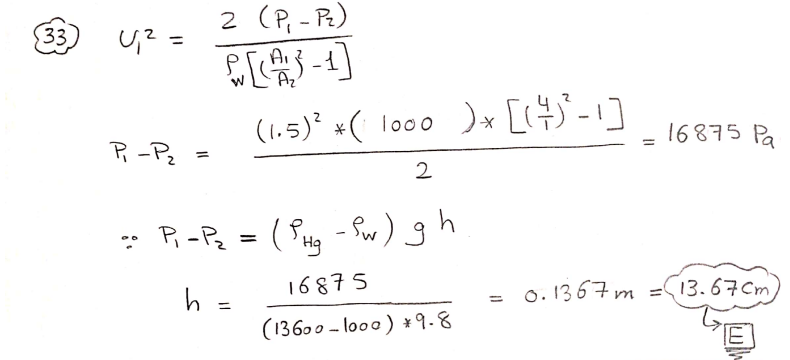 33 U₁² = 2 (P₁ - P₂) / ρw [(A₁/A₂)² - 1]
P₁ - P₂ = (1.5)² * ( 1000 ) * [(4/1)² - 1] / 2 = 16875 Pa
∵ P₁ - P₂ = (ρHg - ρw) g h
h = 16875 / (13600 - 1000) * 9.8 = 0.1367 m = 13.67 Cm
E